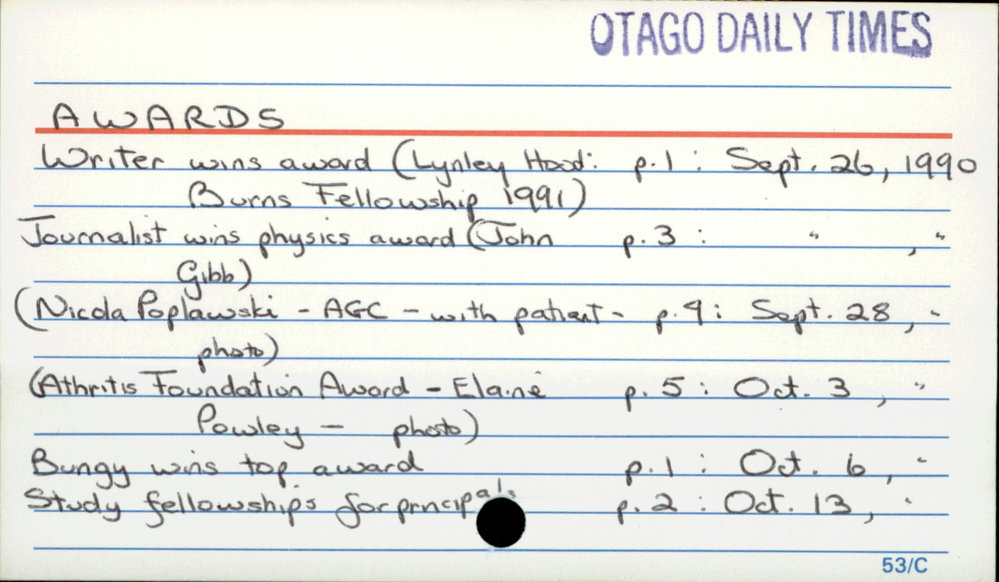 OTAGO DAILY TIMES
AWARDS
Writer wins award (Lynley Hood: p.1 : Sept. 26, 1990
Burns Fellowship 1991)
Journalist wins physics award (John p.3 : " , "
Gibb)
(Nicola Poplawski - AGC - with patient - p.9 : Sept. 28, "
photo)
(Athritis Foundation Award - Elaine p.5 : Oct. 3, "
Powley - photo)
Bungy wins top award p.1 : Oct. 6, "
Study fellowships for principals p.2 : Oct. 13, "
53/C